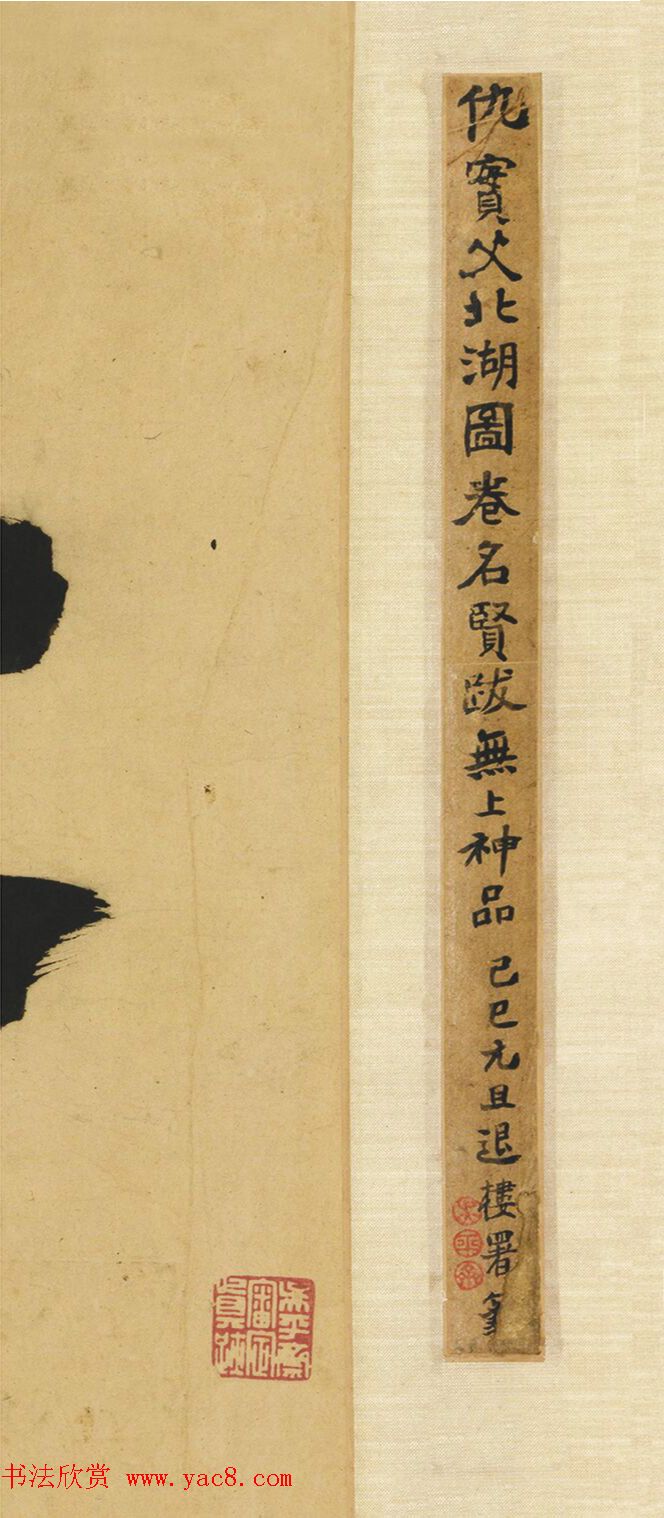 仇實父北湖圖卷名賢跋無上神品
己巳元旦退樓署
吳平齋
书法欣赏 www.yac8.com